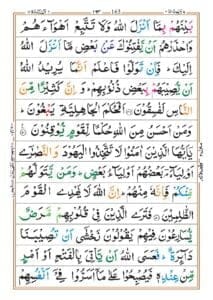 بَيْنَهُمْ بِمَاۤ اَنْزَلَ اللّٰهُ وَلَا تَتَّبِعْ اَهْوَآءَهُمْ
وَاحْذَرْهُمْ اَنْ يَّفْتِنُوْكَ عَنْۢ بَعْضِ مَاۤ اَنْزَلَ اللّٰهُ
اِلَيْكَ ؕ فَاِنْ تَوَلَّوْا فَاعْلَمْ اَنَّمَا يُرِيْدُ اللّٰهُ
اَنْ يُّصِيْبَهُمْ بِبَعْضِ ذُنُوْبِهِمْ ؕ وَاِنَّ كَثِيْرًا مِّنَ
النَّاسِ لَفٰسِقُوْنَ اَفَحُكْمَ الْجَاهِلِيَّةِ يَبْغُوْنَ ؕ
وَمَنْ اَحْسَنُ مِنَ اللّٰهِ حُكْمًا لِّقَوْمٍ يُّوْقِنُوْنَ
يٰۤاَيُّهَا الَّذِيْنَ اٰمَنُوْا لَا تَتَّخِذُوا الْيَهُوْدَ وَالنَّصٰرٰۤى
اَوْلِيَآءَ ؔ بَعْضُهُمْ اَوْلِيَآءُ بَعْضٍ ؕ وَمَنْ يَّتَوَلَّهُمْ
مِّنْكُمْ فَاِنَّهٗ مِنْهُمْ ؕ اِنَّ اللّٰهَ لَا يَهْدِى الْقَوْمَ
الظّٰلِمِيْنَ فَتَرَى الَّذِيْنَ فِيْ قُلُوْبِهِمْ مَّرَضٌ
يُّسَارِعُوْنَ فِيْهِمْ يَقُوْلُوْنَ نَخْشٰۤى اَنْ تُصِيْبَنَا
دَآئِرَةٌ ؕ فَعَسَى اللّٰهُ اَنْ يَّاْتِيَ بِالْفَتْحِ اَوْ اَمْرٍ
مِّنْ عِنْدِهٖ فَيُصْبِحُوْا عَلٰى مَاۤ اَسَرُّوْا فِيْۤ اَنْفُسِهِمْ